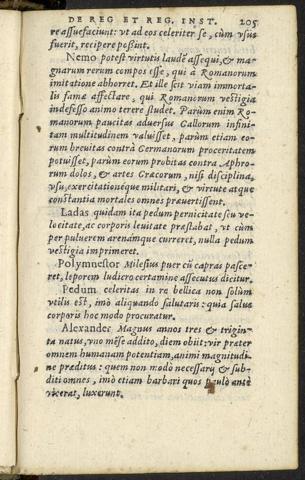 DE REG ET REG. INST. 205
re assuefaciunt: vt ad eos celeriter se, cùm vsus
fuerit, recipere possint.
Nemo potest virtutis laudē assequi, & ma-
gnarum rerum compos esse, qui à Romanorum
imitatione abhorret. Et ille scit viam immorta-
lis famæ affectare, qui Romanorum vestigia
indefesso animo terere studet. Parùm enim Ro-
manorum paucitas aduersus Gallorum infini-
tam multitudinem valuisset, parùm etiam eo-
rum breuitas contrà Germanorum proceritatem
potuisset, parùm eorum probitas contra Aphro-
rum dolos, & artes Græcorum, nisi disciplina,
vsu, exercitationéque militari, & virtute atque
constantia mortales omnes præuertissent.
Ladas quidam ita pedum pernicitate seu ve-
locitate, ac corporis leuitate præstabat, vt cùm
per puluerem arenámque curreret, nulla pedum
vestigia imprimeret.
Polymnestor Milesius puer cū capras pasce-
ret, leporem ludicro certamine assecutus dicitur.
Pedum celeritas in re bellica non solùm
vtilis est, imò aliquando salutaris: quia salus
corporis hoc modo procuratur.
Alexander Magnus annos tres & trigin-
ta natus, vno mēse addito, diem obiit: vir præter
omnem humanam potentiam, animi magnitudi-
ne præditus: quem non modò necessarij & sub-
diti omnes, imò etiam barbari quos paulò antè
vicerat, luxerunt.